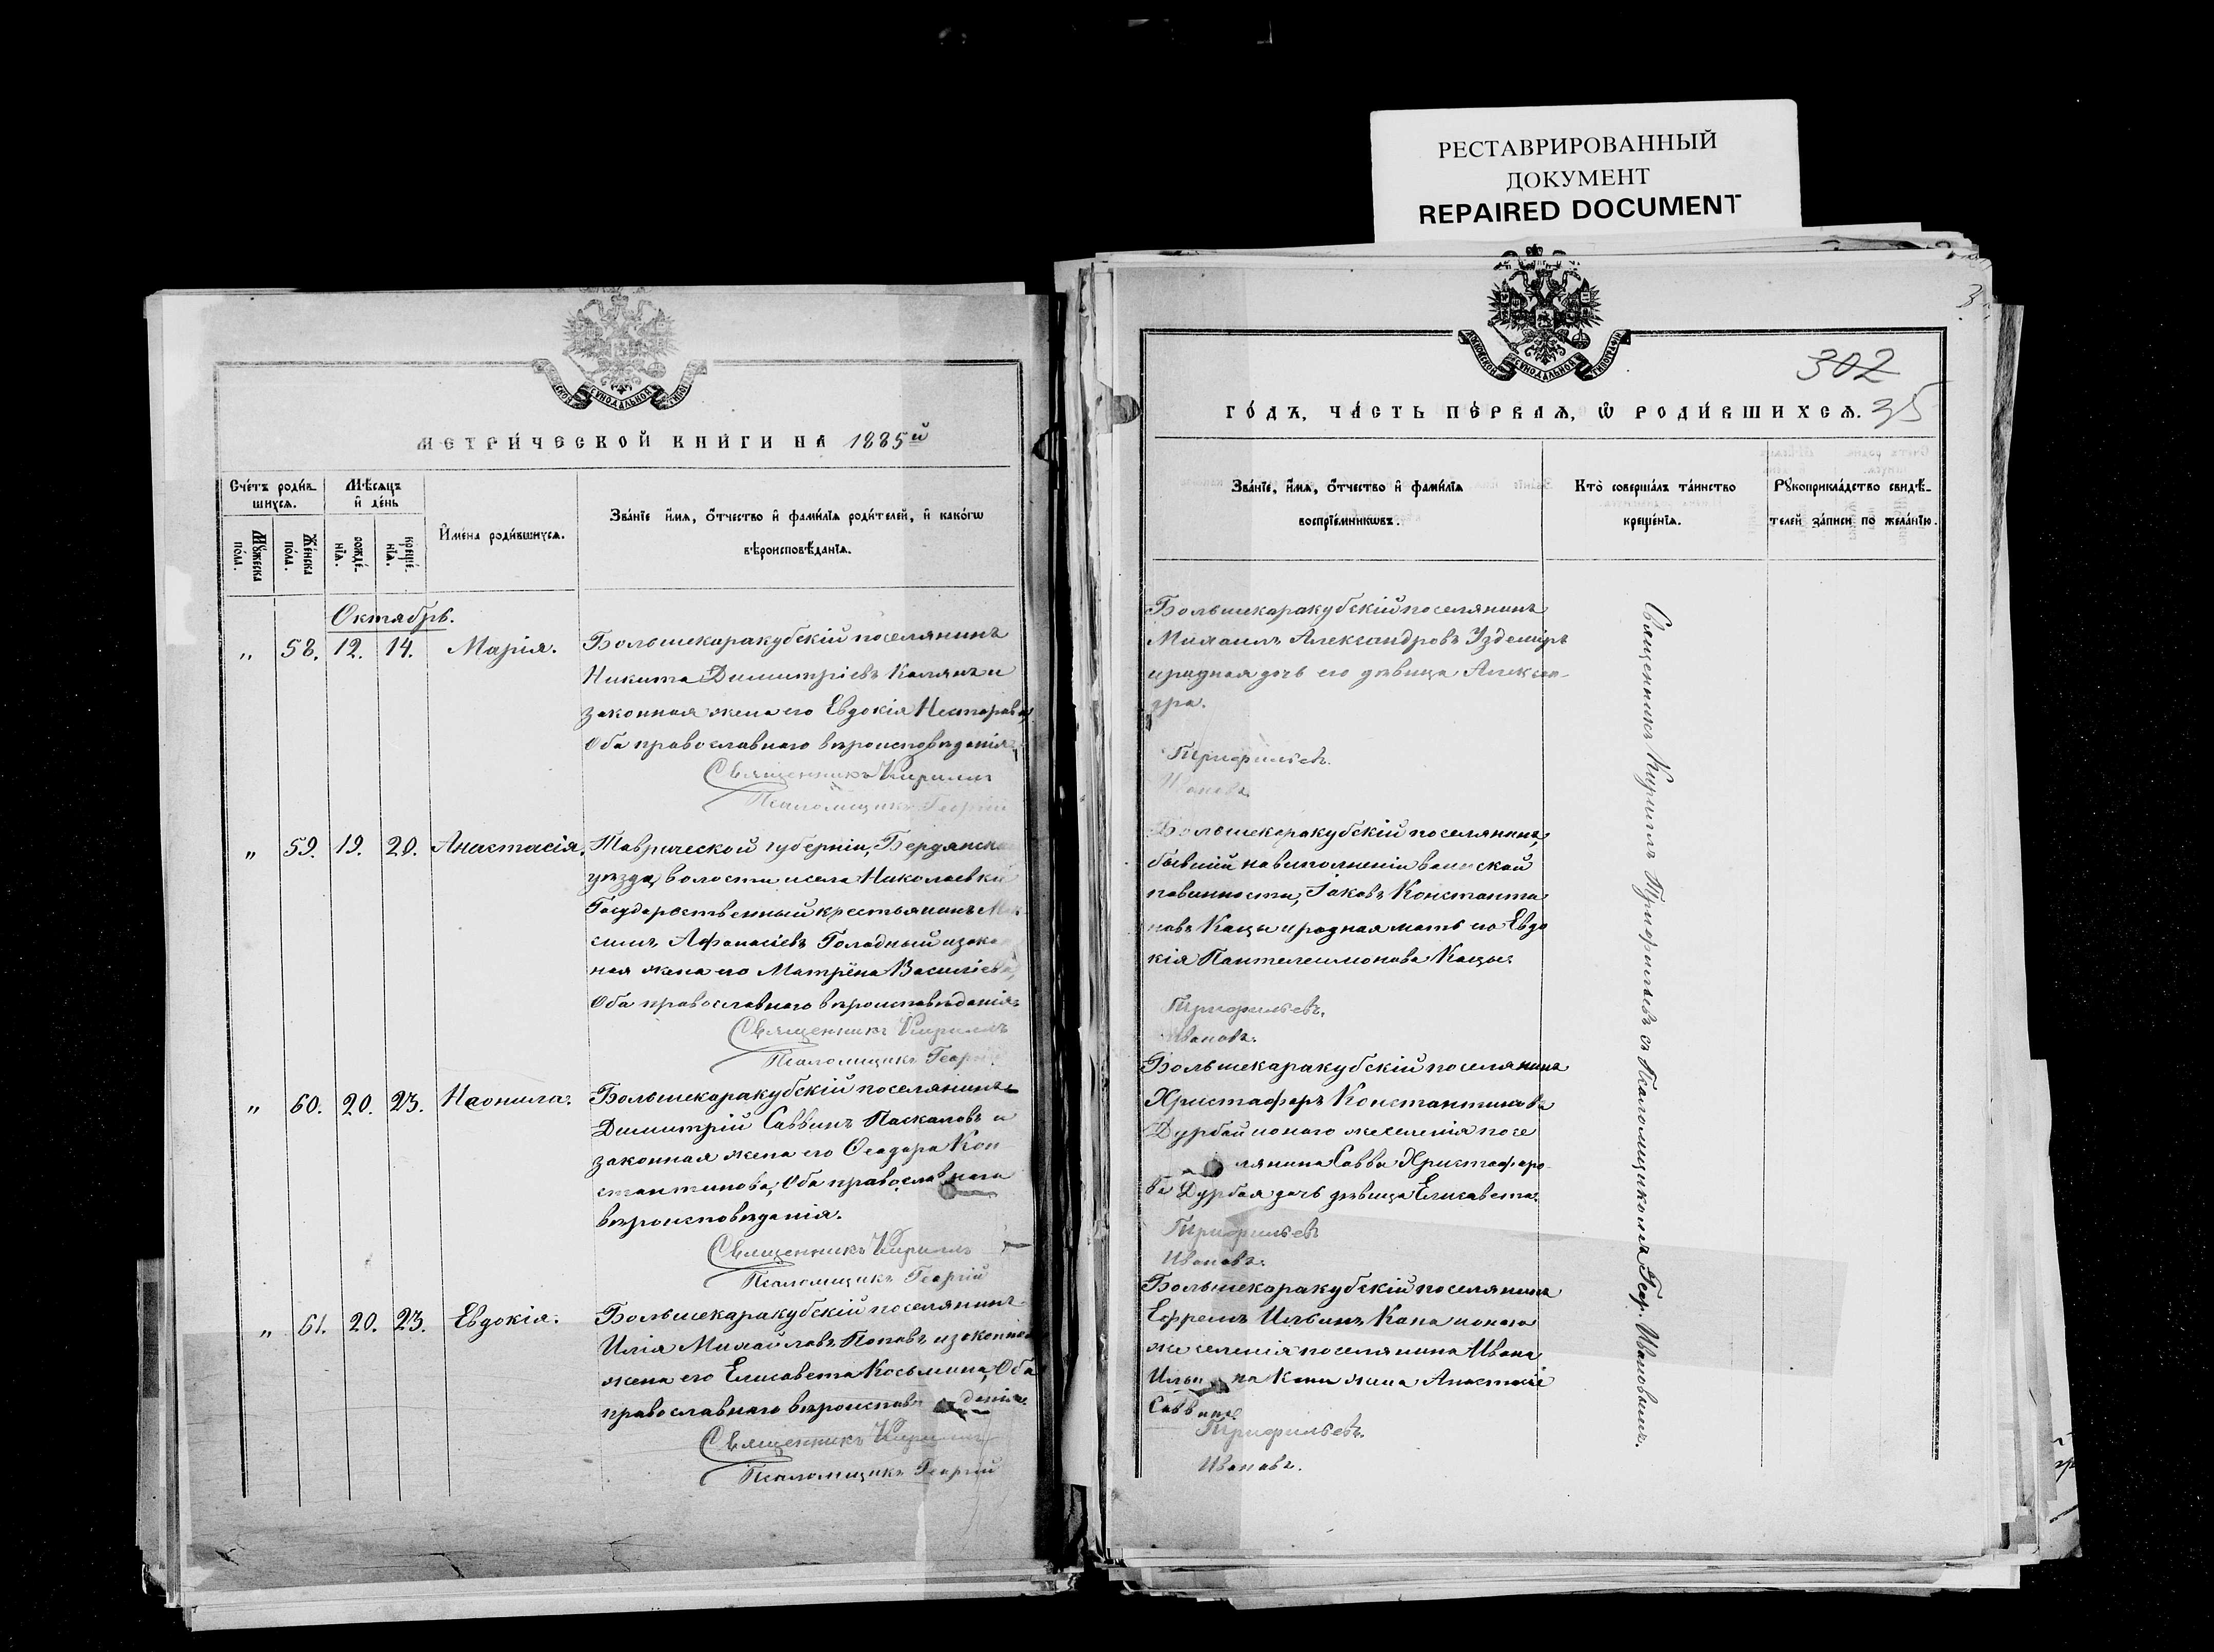 РЕСТАВРИРОВАННЫЙ
ДОКУМЕНТ
REPAIRED DOCUMENT
МЕТРИ́ЧЕСКОЙ КНИ́ГИ НА 1885й
Сче́тъ роди́в-
шихсѧ.
Мѣ́сѧцъ
и҆ де́нь
Мꙋ́жеска
по́ла.
Же́нска
по́ла.
рожде́-
нїѧ.
креще́-
нїѧ.
И҆мена̀ роди́вшихсѧ.
Зва́нїе и҆́мѧ, ѻ҆́тчество и҆ фами́лїѧ роди́телей, и҆ како́гѡ
вѣроисповѣ́данїѧ.
Октябрь.
„ 58. 12. 14. Марія.
Большекаракубскій поселянинъ
Никита Димитріевъ Калянъ и
законная жена его Евдокія Несторова,
Оба православнаго вѣроисповѣданія.
Священникъ Кириллъ
Псаломщикъ Георгій
„ 59. 19. 20. Анастасія.
Таврической губерніи, Бердянска
уѣзда, волости и села Николаевки
Государственный крестьянинъ Мак-
симъ Афанасіевъ Голодный и закон
ная жена его Матрёна Василіева,
Оба православнаго вѣроисповѣданія.
Священникъ Кириллъ
Псаломщикъ Георгій
„ 60. 20. 23. Неонила.
Большекаракубскій поселянинъ
Димитрій Саввинъ Паскаловъ и
законная жена его Ѳеодора Кон-
стантинова, Оба православнаго
вѣроисповѣданія.
Священникъ Кириллъ
Псаломщикъ Георгій
„ 61. 20. 23. Евдокія.
Большекаракубскій поселянинъ
Илія Михайловъ Поповъ и законная
жена его Елисавета Косьмина, Оба
православнаго вѣроисповѣданія.
Священникъ Кириллъ
Псаломщикъ Георгій
МОСКОВСКОЙ СѴНОДАЛЬНОЙ ТИПОГРАФІИ
302
ГО́ДЪ, ЧА́СТЬ ПЕ́РВАѦ, Ѡ҆ РОДИ́ВШИХСѦ. 35
Зва́нїе, и҆́мѧ, ѻ҆́тчество и҆ фами́лїѧ
воспрїе́мникѡвъ.
Кто̀ соверша́лъ та́инство
креще́нїѧ.
Рꙋкоприкла́дство свидѣ́-
телей за́писи по жела́нїю.
Большекаракубскій поселянинъ
Михаилъ Александровъ Узdemiръ
и родная дочь его дѣвица Алексан-
дра.
Трифильевъ.
Ивановъ.
Большекаракубскій поселянинъ,
бывшій на выполненіи воинской
повинности, Іаковъ Константи
новъ Кацы и родная мать его Евдо
кія Пантелеимонова Кацы.
Трифильевъ.
Ивановъ.
Большекаракубскій поселянинъ
Христофоръ Константиновъ
Дурбай и онаго же селенія посе
лянина Савва Христофоро-
ва Дурбая дочь дѣвица Елисавета.
Трифильевъ
Ивановъ.
Большекаракубскій поселянинъ
Ефремъ Ильинъ Капа и онаго
же селенія поселянина Ивана
Ильина Капи жена Анастасія
Саввина.
Трифильевъ.
Ивановъ.
Священникъ Кириллъ Трифильевъ съ Псаломщикомъ Геор. Ивановымъ.